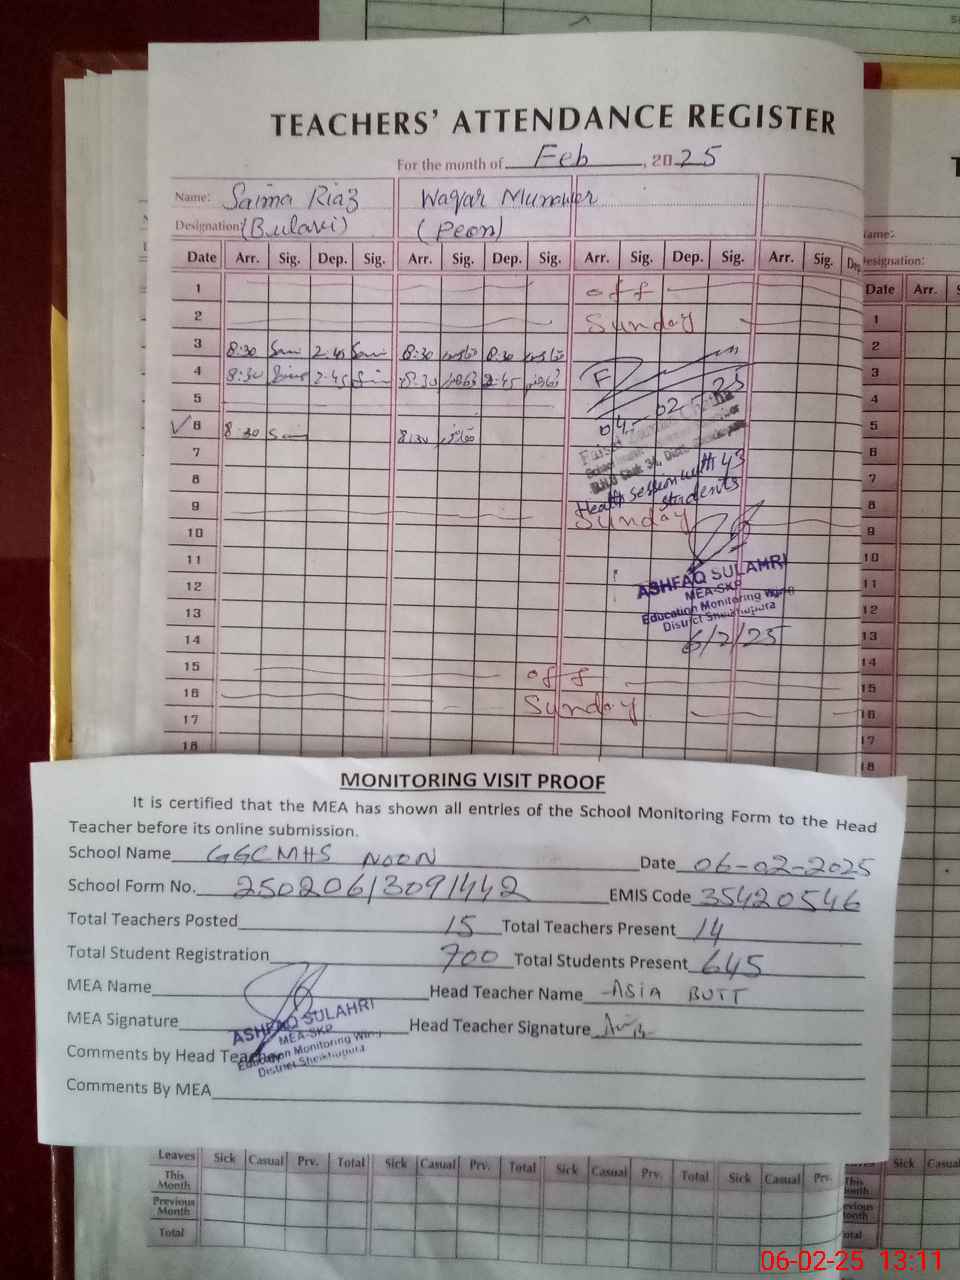 TEACHERS' ATTENDANCE REGISTER
For the month of Feb, 2025
Name: Saima Riaz Waqar Munawer
Designation (Bulavi) (Peon)
Date Arr. Sig. Dep. Sig. Arr. Sig. Dep. Sig. Arr. Sig. Dep. Sig. Arr. Sig. Dep.
1 off
2 Sunday
3 8:30 2:45 8:30 8:30
4 8:30 2:45 8:30 2:45
5
6 8:30 8:30
7
8
9 Sunday
10
11
12
13
14
15 off
16 Sunday
17
18
F
04-02-25
Health session with 43
students
ASHFAQ SULAHRI
MEA-SKP
Education Monitoring Wing
District Sheikhupura
6/2/25
Name:
Designation:
Date Arr.
1
2
3
4
5
6
7
8
9
10
11
12
13
14
15
16
17
18
MONITORING VISIT PROOF
It is certified that the MEA has shown all entries of the School Monitoring Form to the Head
Teacher before its online submission.
School Name GGCMHS NOON Date 06-02-2025
School Form No. 25020613091442 EMIS Code 35420546
Total Teachers Posted 15 Total Teachers Present 14
Total Student Registration 700 Total Students Present 645
MEA Name Head Teacher Name ASIA BUTT
MEA Signature Head Teacher Signature
ASHFAQ SULAHRI
MEA-SKP
Education Monitoring Wing
District Sheikhupura
Comments by Head Teacher
Comments By MEA
Leaves Sick Casual Prv. Total Sick Casual Prv. Total Sick Casual Prv. Total Sick Casual Prv. Sick Casual
This Month
Previous Month
Total
06-02-25 13:11